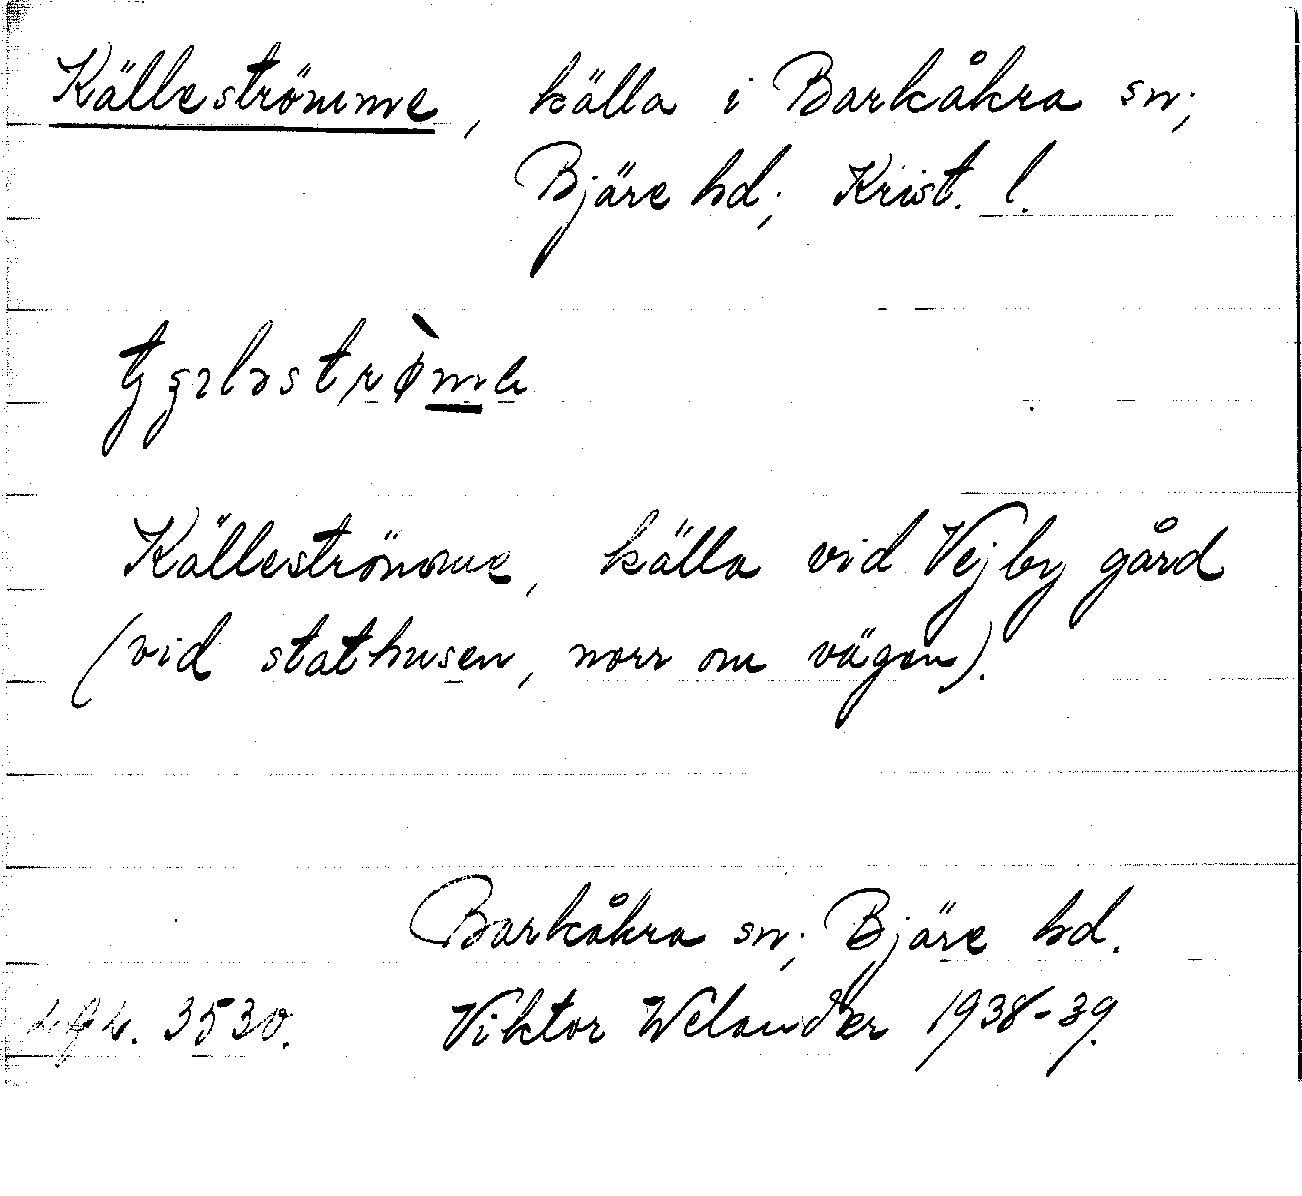 Källeströmme, källa i Barkåkra sn;
Bjäre hd; Krist. l.
Källeströmme, källa vid Vejby gård
(vid stathusen, norr om vägen).
Barkåkra sn; Bjäre hd.
3530. Viktor Welander 1938-39.